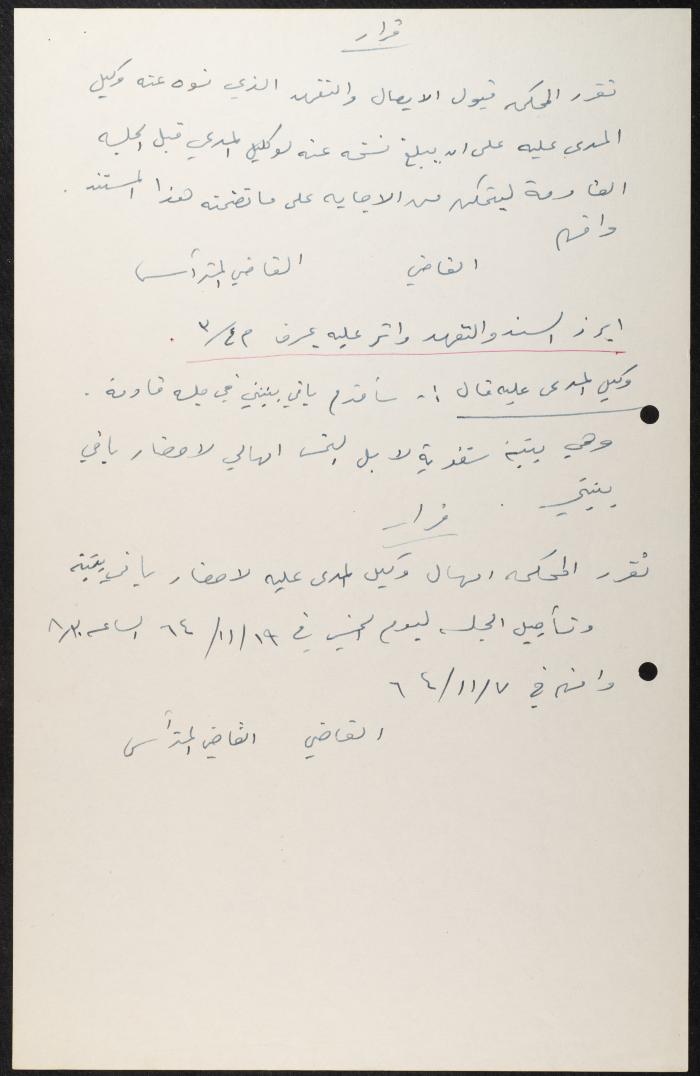 قرار
تقرر المحكمه قبول الايصال والتعهد الذي نوه عنه وكيل
المدعى عليه على ان يبلغ نسخه عنه لوكيل المدعي قبل الجلسه
القادمة ليتمكن من الاجابه على ما تضمنه هذا المستند .
وافهم
القاضي القاضي المترأس
ابرز السند والتعهد واشر عليه بحرف م ع/٣ .
وكيل المدعى عليه قال :- سأقدم باقي بينتي في جلسه قادمة .
وهي بينة شفوية لا بل التمس امهالي لاحضار باقي
بينتي .
قرار
تقرر المحكمه امهال وكيل المدعى عليه لاحضار باقي بينته
وتأجيل الجلسه ليوم الخميس في ١٩/١١/٦٤ الساعه ٨,٣٠
وافهم في ٧/١١/٦٤
القاضي القاضي المترأس